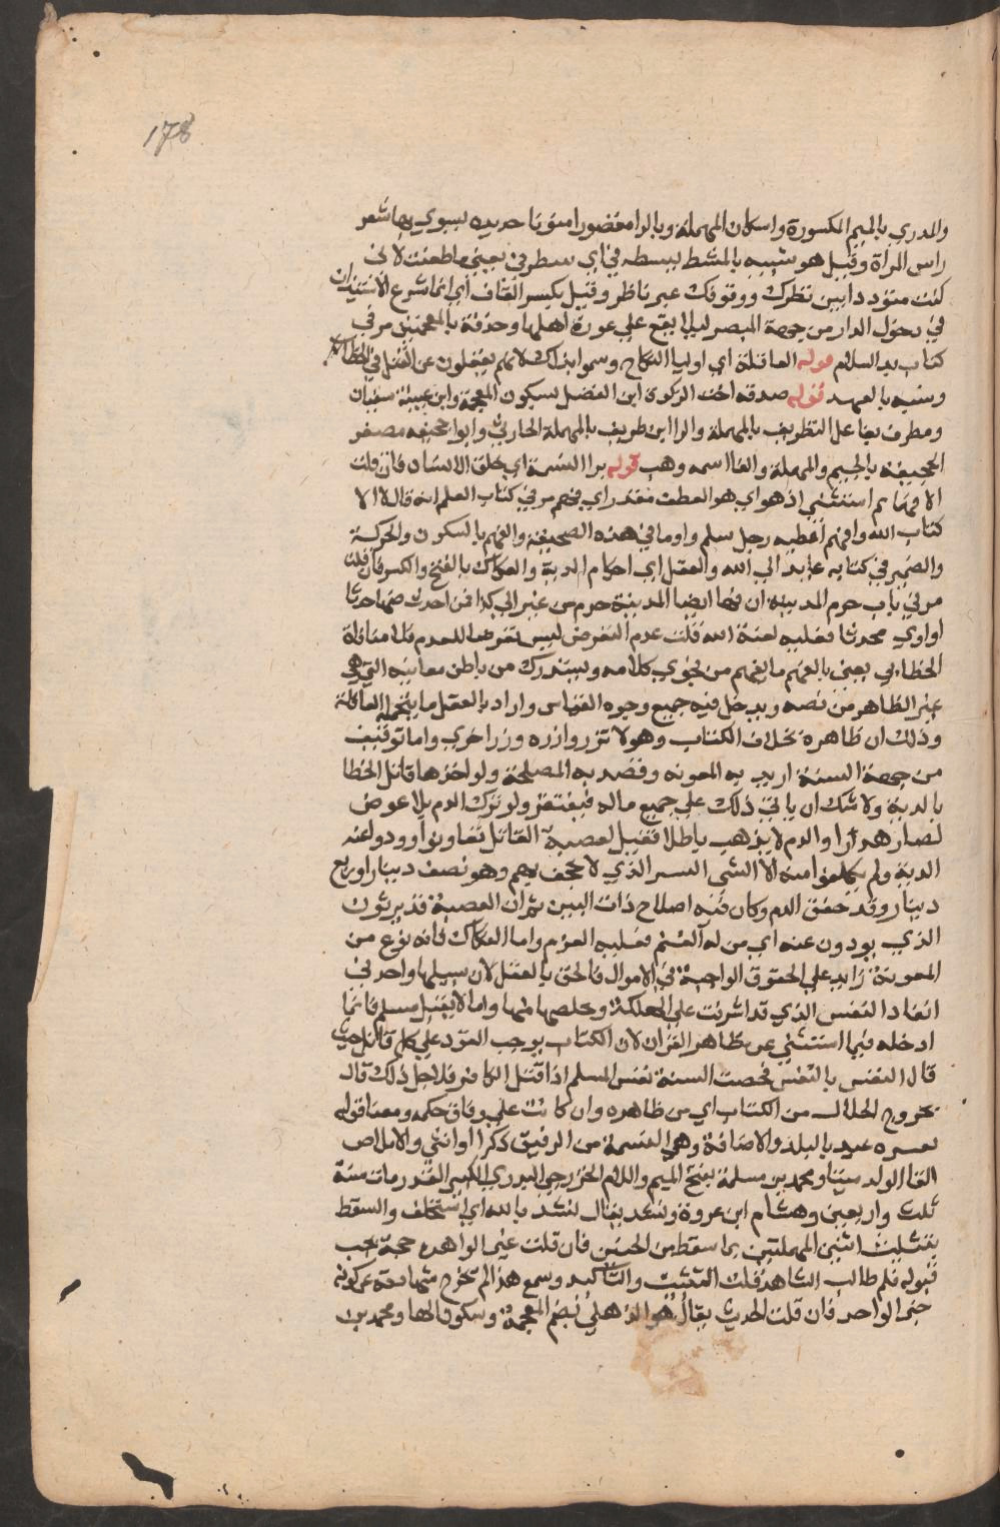 178
والمدري بالميم المكسورة واسكان المهملة وبالرا مقصورا منونا حديده يسوي بها شعر
راس المراة وقيل هو شبيه بالمشط ينظر في اي سطر في يعني ما طعنت لاني
كنت مترددا بين نظرك ووقوفك غير ناظر وقيل بكسر القاف اي انما شرع الاستيذان
في دخول الدار من جهة البصر ليلا يقع علي عورة اهلها وحذفة بالمعجمتين مر في
كتاب بدء السلام قوله العاقلة اي اوليا النكاح وسموا بذلك لانهم يعقلون عن القتل في الخطا
وشبه بالعمد قوله صدقة اخت الزكوة ابن الفضل بسكون المعجمة وابن عيينة سفيان
ومطرف بفاعل التطريف بالمهملة والرا ابن طريف بالمهملة الحارثي وابو جحيفة مصغر
الجحيفة بالجيم والمهملة والفا اسمه وهب قوله برا النسمة اي خلق الانسان فان قلت
الا فهما لم استثني اذ هو اي هو العطف مقدر اي فهم مر في كتاب العلم انه قال لا الا
كتاب الله وافهم اعطيه رجل سلم او ما في هذه الصحيفة والفهم بالسكون والحركة
والضمير في كتابه عايد الي الله والعقل اي احكام الدية والفكاك بالفتح والكسر فان قلت
مر في باب حرم المدينة ان فيها ايضا المدينة حرم من عير الي كذا فمن احدث فيها حدثا
او اوي محدثا فعليه لعنة الله قلت عدم التعرض ليس تعرضا للعدم فلا منافاة
الخطابي يعني بالفهم ما يفهم من فحوي كلامه ويستدرك من باطن معانيه التي هي
غير الظاهر من نصه ويدخل فيه جميع وجوه القياس واراد بالعقل ما يتحمله العاقلة
وذلك ان ظاهره بخلاف الكتاب وهو لا تزر وازره وزر اخري وانما توقيف
من جهة السنة اريد به المعونه وقصد به المصلحة ولو اخذها قاتل الخطا
بالدية ولا شك ان ياتي ذلك علي جميع ماله فيفتقر ولو ترك الدم بلا عوض
لصار هدرا والدم لا يذهب باطلا فقيل لعصبة القاتل تعاونوا وودوا عنه
الدية ولم يكلفوا منه الا الشي اليسير الذي لا يجحف بهم وهو نصف دينار او ربع
دينار وقد حقق الدم وكان فيه اصلاح ذات البين ثم ان العصبة قد يرثون
الذي يودون عنه اي من له الغنم فعليه الغرم واما الفكاك فانه نوع من
المعونة زايد علي الحقوق الواجبة في الاموال فالحق بالعقل لان سبيلها واحد في
انقاذ النفس الذي قد اشرفت علي الهلكة وتخلصها منها واما لا يقتل مسلم فانما
ادخله فيما استثني عن ظاهر القران لان الكتاب يوجب القود علي كل قاتل حيث
قال النفس بالنفس فخصت السنة نفس المسلم اذا قتل الكافر فلاجل ذلك قال
بخروج الحلال من الكتاب اي من ظاهره وان كانت علي وفاق حكمه ومعنا قوله
بغره عبد بالبلد والاضافة وهي النسمة من الرقيق ذكرا او انثي والاملاص
القا الولد ميتا ومحمد بن مسلمة بفتح الميم واللام الخزرجي البدري الكبير القدر مات سنة
ثلث واربعين وهشام ابن عروة ونشد يقال نشد بالله اي استحلف والسقط
بتثليث السين المهملتين ما سقط من الجنين فان قلت خبر الواحد حجة يجب
قبوله فلم طالب الشاهد قلت التثبت والتاكيد ومع هذا لم تخرج شهادته عن كونه
خبر الواحد فان قلت الحديث يقال هو الذهلي بضم المعجمة وسكون الها ومحمد بن